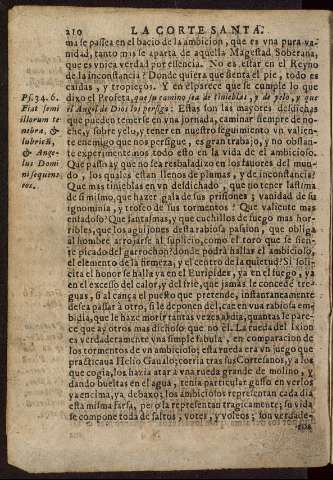 210 LA CORTE SANTA.
ma se passea en el bacio de la ambicion, que es vna pura va-
nidad, tanto mas se aparta de aquella Magestad Soberana,
que es vnica verdad por essencia. No es estar en el Reyno
de la inconstancia? Donde quiera que sienta el pie, todo es
caidas, y tropieços. Y en el parece que se cumple lo que
Ps. 34. 6.
Fiat semi
illorum te
nebra, &
lubricũ,
& Ange-
lus Domi
ni sequens
eos.
dixo el Profeta, que su camino sea de tinieblas, y de yelo, y que
el Angel de Dios los persiga: Estas son las mayores desdichas
que pueden temerse en vna jornada, caminar siempre de no-
che, y sobre yelo, y tener en nuestro seguimiento vn valien-
te enemigo que nos persigue, es gran trabajo, y no obstan-
te experimentamos todo esto en la vida de el ambicioso.
Que passa ay que no sea resbaladizo en los fauores del mun-
do, los quales estan llenos de plumas, y de inconstancias?
Que mas tinieblas en vn desdichado, que no tener lastima
de si mismo, que hazer gala de sus prisiones, vanidad de su
ignominia, y tosco de sus tormentos? Que valiente mas
enfadoso? Que fantasmas, y que cuchillos de fuego mas hor-
ribles, que los aguijones desta rabiosa passion, que obliga
al hombre arrojarse al suplicio, como el toro que se sien-
te picado del garrochon? donde podrà hallar el ambicioso,
el elemento de la firmeza, y el centro de la quietud? Si soli-
cita el honor se halla ya en el Euripides, ya en el fuego, ya
en el excesso del calor, y del frie, que jamàs le concede tre-
guas, si alcança el puesto que pretende, instantaneamente
desea passar à otro, si le deponen dèl, cae en vna rabiosa em-
bidia, que le haze morir tantas vezes al dia, quantas le pare-
ce que ay otros mas dichoso que no èl. La rueda del Ixion
es verdaderamente vna simple fabula, en comparacion de
los tormentos de vn ambicioso; esta rueda era vn juego que
practicaua Helio Gaualo; corria tras sus Cortesanos, y a los
que cogia, los hazia atar à vna rueda grande de molino, y
dando bueltas en el agua, tenia particular gusto en verlos
ya encima, ya debaxo; los ambiciosos representan cada dia
esta misma farsa, pero la representan tragicamente; su vida
se compone toda de saltos, votes, y voleos; son verdade-